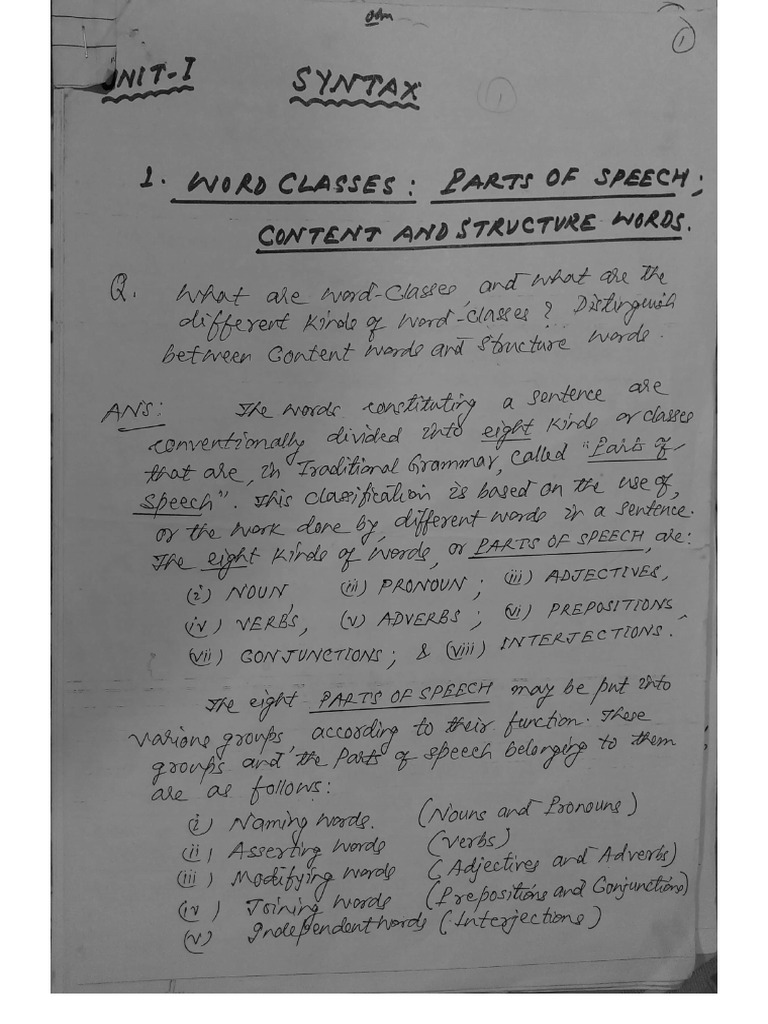 Om
1
UNIT-I SYNTAX
1
1. WORD CLASSES: PARTS OF SPEECH;
CONTENT AND STRUCTURE WORDS.
Q. What are Word-Classes, and what are the
different kinds of word-classes? Distinguish
between Content words and Structure words.
ANS: The words constituting a sentence are
conventionally divided into eight kinds or classes
that are, in Traditional Grammar, called "Parts of
Speech". This classification is based on the use of,
or the work done by, different words in a sentence.
The eight kinds of words, or PARTS OF SPEECH, are:
(i) NOUN, (ii) PRONOUN; (iii) ADJECTIVES,
(iv) VERBS, (v) ADVERBS; (vi) PREPOSITIONS,
(vii) CONJUNCTIONS; & (viii) INTERJECTIONS.
The eight PARTS OF SPEECH may be put into
various groups, according to their function. These
groups and the Parts of speech belonging to them
are as follows:
(i) Naming words. (Nouns and Pronouns)
(ii) Asserting words (Verbs)
(iii) Modifying words (Adjectives and Adverbs)
(iv) Joining words (Prepositions and Conjunctions)
(v) Independent words (Interjections)